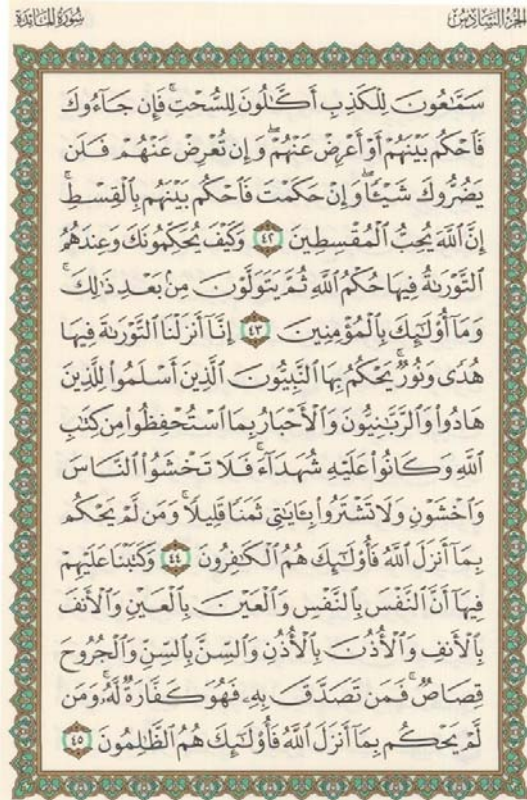 الجزء السادس
سورة المائدة
سَمَّٰعُونَ لِلْكَذِبِ أَكَّٰلُونَ لِلسُّحْتِ ۚ فَإِن جَآءُوكَ
فَٱحْكُم بَيْنَهُمْ أَوْ أَعْرِضْ عَنْهُمْ ۖ وَإِن تُعْرِضْ عَنْهُمْ فَلَن
يَضُرُّوكَ شَيْـًٔا ۖ وَإِنْ حَكَمْتَ فَٱحْكُم بَيْنَهُم بِٱلْقِسْطِ ۚ
إِنَّ ٱللَّهَ يُحِبُّ ٱلْمُقْسِطِينَ ٤٢ وَكَيْفَ يُحَكِّمُونَكَ وَعِندَهُمُ
ٱلتَّوْرَىٰةُ فِيهَا حُكْمُ ٱللَّهِ ثُمَّ يَتَوَلَّوْنَ مِنۢ بَعْدِ ذَٰلِكَ ۚ
وَمَآ أُو۟لَٰٓئِكَ بِٱلْمُؤْمِنِينَ ٤٣ إِنَّآ أَنزَلْنَا ٱلتَّوْرَىٰةَ فِيهَا
هُدًى وَنُورٌ ۚ يَحْكُمُ بِهَا ٱلنَّبِيُّونَ ٱلَّذِينَ أَسْلَمُوا۟ لِلَّذِينَ
هَادُوا۟ وَٱلرَّبَّٰنِيُّونَ وَٱلْأَحْبَارُ بِمَا ٱسْتُحْفِظُوا۟ مِن كِتَٰبِ
ٱللَّهِ وَكَانُوا۟ عَلَيْهِ شُهَدَآءَ ۚ فَلَا تَخْشَوُا۟ ٱلنَّاسَ
وَٱخْشَوْنِ وَلَا تَشْتَرُوا۟ بِـَٔايَٰتِى ثَمَنًا قَلِيلًا ۚ وَمَن لَّمْ يَحْكُم
بِمَآ أَنزَلَ ٱللَّهُ فَأُو۟لَٰٓئِكَ هُمُ ٱلْكَٰفِرُونَ ٤٤ وَكَتَبْنَا عَلَيْهِمْ
فِيهَآ أَنَّ ٱلنَّفْسَ بِٱلنَّفْسِ وَٱلْعَيْنَ بِٱلْعَيْنِ وَٱلْأَنفَ
بِٱلْأَنفِ وَٱلْأُذُنَ بِٱلْأُذُنِ وَٱلسِّنَّ بِٱلسِّنِّ وَٱلْجُرُوحَ
قِصَاصٌ ۚ فَمَن تَصَدَّقَ بِهِۦ فَهُوَ كَفَّارَةٌ لَّهُۥ ۚ وَمَن
لَّمْ يَحْكُم بِمَآ أَنزَلَ ٱللَّهُ فَأُو۟لَٰٓئِكَ هُمُ ٱلظَّٰلِمُونَ ٤٥